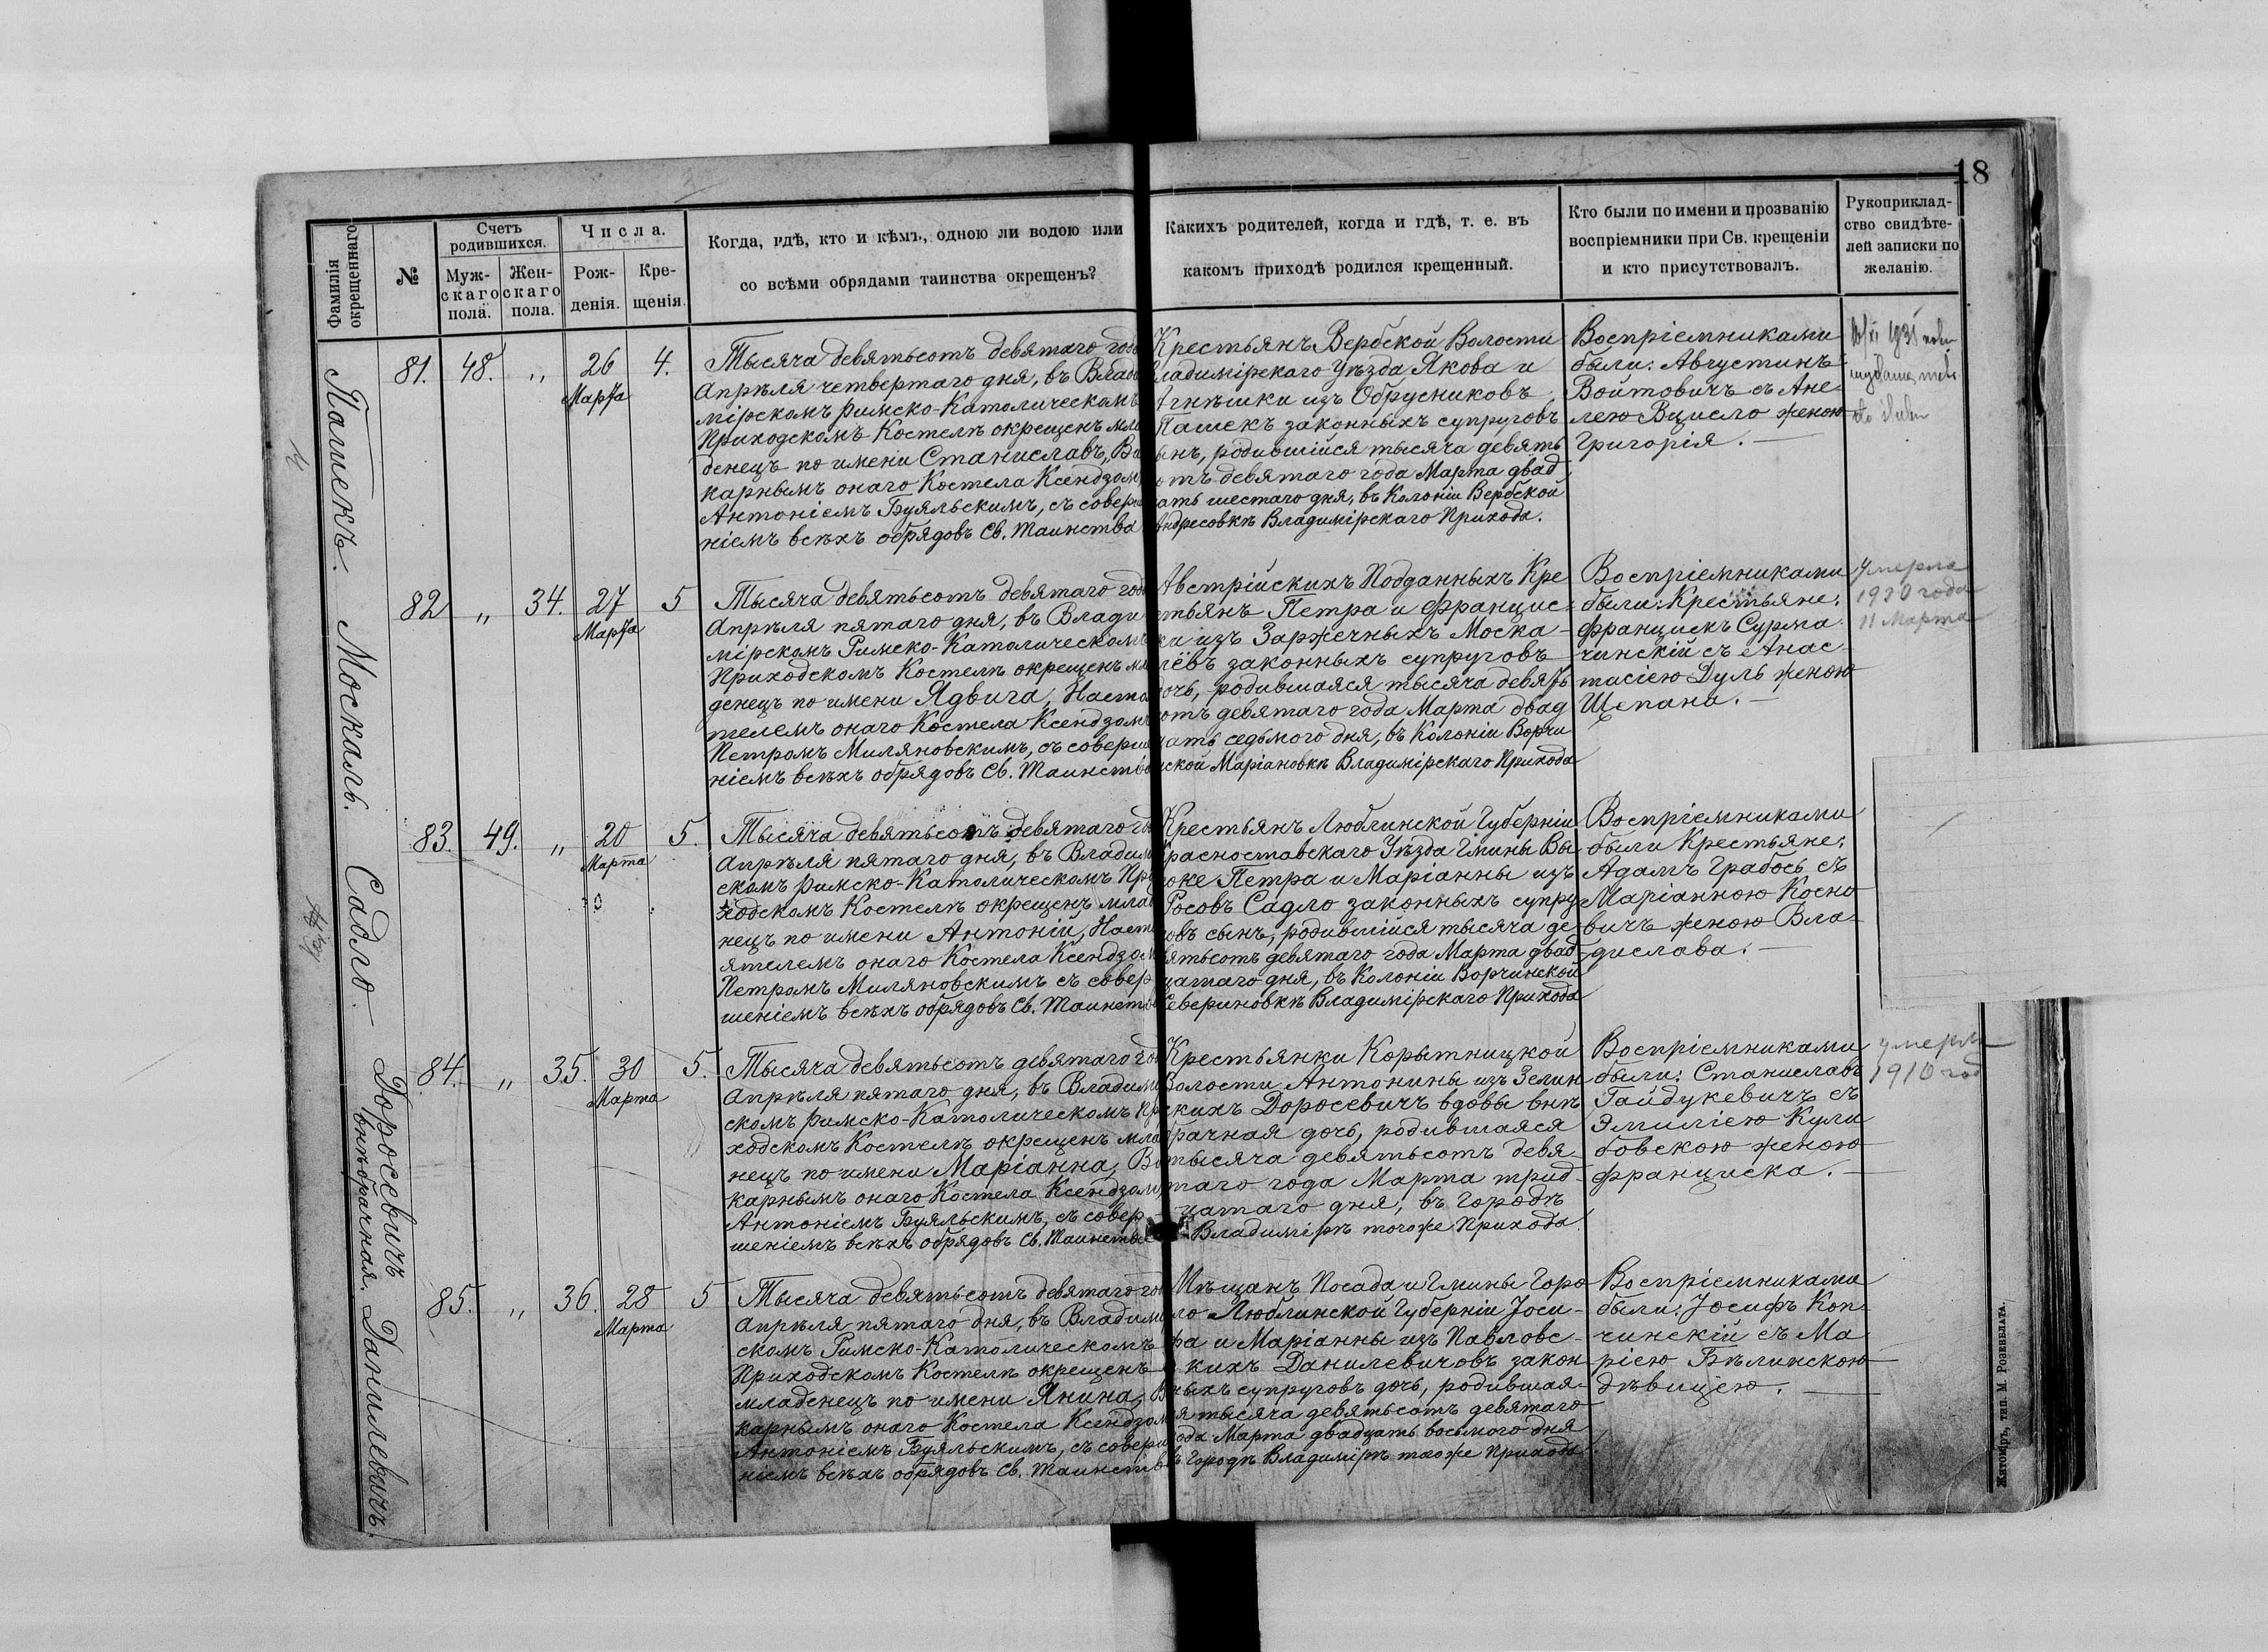 18
Фамилія окрещеннаго
№
Счетъ родившихся.
Муж-
скаго
пола.
Жен-
скаго
пола.
Числа.
Рож-
денія.
Кре-
щенія.
Когда, гдѣ, кто и кѣмъ, одною ли водою или
со всѣми обрядами таинства окрещенъ?
Какихъ родителей, когда и гдѣ, т. е. въ
какомъ приходѣ родился крещенный.
Кто были по имени и прозванію
воспріемники при Св. крещеніи
и кто присутствовалъ.
Рукоприклад-
ство свидѣте-
лей записки по
желанію.
Пашекъ.
81. 48. " 26 Марта 4.
Тысяча девятьсотъ девятаго года
Апрѣля четвертаго дня, въ Влади
мірскомъ Римско-Католическомъ
Приходскомъ Костелѣ окрещенъ мла
денецъ по имени Станиславъ, Ви
карнымъ онаго Костела Ксендзомъ
Антоніемъ Буяльскимъ, съ соверше
ніемъ всѣхъ обрядовъ Св. Таинства
Крестьянъ Вербской Волости
Владимірскаго Уѣзда Якова и
Агнѣшки изъ Обрусниковъ
Пашекъ законныхъ супруговъ
сынъ, родившійся тысяча девять
сотъ девятаго года Марта двад
цать шестаго дня, въ Колоніи Вербской
Андресовкѣ Владимірскаго Прихода.
Воспріемниками
были: Августинъ
Войтовичъ съ Ане-
лею Вцисло женою
Григорія.
1931
do
Москаль.
82 " 34. 27 Марта 5
Тысяча девятьсотъ девятаго года
Апрѣля пятаго дня, въ Влади
мірскомъ Римско-Католическомъ
Приходскомъ Костелѣ окрещенъ мла
денецъ по имени Ядвига, Настоя
телемъ онаго Костела Ксендзомъ
Петромъ Миляновскимъ, съ соверше
ніемъ всѣхъ обрядовъ Св. Таинства
Австрійскихъ Подданныхъ Кре
стьянъ Петра и Францис-
ка изъ Заржечныхъ Моска-
лёвъ законныхъ супруговъ
дочь, родившаяся тысяча девять
сотъ девятаго года Марта двад
цать седьмого дня, въ Колоніи Ворчи
нской Маріановкѣ Владимірскаго Прихода
Воспріемниками
были: Крестьяне:
Францискъ Сурма-
чинскій съ Анас-
тасіею Дуль женою
Щепана.
Умерла
1910 года
11 Марта
Садло.
83. 49. " 20 Марта 5.
Тысяча девятьсотъ девятаго года
Апрѣля пятаго дня, въ Владимір
скомъ Римско-Католическомъ При
ходскомъ Костелѣ окрещенъ младе
нецъ по имени Антоній, Насто
ятелемъ онаго Костела Ксендзомъ
Петромъ Миляновскимъ съ совер
шеніемъ всѣхъ обрядовъ Св. Таинства
Крестьянъ Люблинской Губерніи
Красноставскаго Уѣзда Гмины Вы-
соке Петра и Маріанны изъ
Росовъ Садло законныхъ супру-
говъ сынъ, родившійся тысяча де-
вятьсотъ девятаго года Марта двад-
цатаго дня, въ Колоніи Ворчинской
Севериновкѣ Владимірскаго Прихода
Воспріемниками
были Крестьяне:
Адамъ Грабось съ
Маріанною Косно
вичъ женою Вла-
дислава.
Доросевичъ
внѣбрачная.
84. " 35. 30 Марта 5.
Тысяча девятьсотъ девятаго года
Апрѣля пятаго дня, въ Владимір
скомъ Римско-Католическомъ При
ходскомъ Костелѣ окрещенъ младе
нецъ по имени Маріанна, Ви
карнымъ онаго Костела Ксендзомъ
Антоніемъ Буяльскимъ, съ совер-
шеніемъ всѣхъ обрядовъ Св. Таинства
Крестьянки Корытницкой
Волости Антонины изъ Зелин
скихъ Доросевичъ вдовы внѣ
брачная дочь, родившаяся
тысяча девятьсотъ девя-
таго года Марта трид-
цатаго дня, въ Городѣ
Владимірѣ тогоже Прихода.
Воспріемниками
были: Станиславъ
Гайдукевичъ съ
Эмиліею Кули
бовскою женою
Франциска.
умерла
1910 год
Данилевичъ.
85. " 36. 28 Марта 5
Тысяча девятьсотъ девятаго года
Апрѣля пятаго дня, въ Владимір
скомъ Римско-Католическомъ
Приходскомъ Костелѣ окрещенъ
младенецъ по имени Янина, Ви
карнымъ онаго Костела Ксендзомъ
Антоніемъ Буяльскимъ, съ соверше
ніемъ всѣхъ обрядовъ Св. Таинства
Мѣщанъ Посада и Гмины Горо
дло Люблинской Губерніи Іоси-
фа и Маріанны изъ Павловс-
кихъ Данилевичовъ закон-
ныхъ супруговъ дочь, родившая-
ся тысяча девятьсотъ девятаго
года Марта двадцать восьмого дня
въ Городѣ Владимірѣ тогоже Прихода.
Воспріемниками
были: Іосифъ Коп-
чинскій съ Ма
ріею Бѣлинскою
дѣвицею.
Житомръ, тип. М. Розенблата.